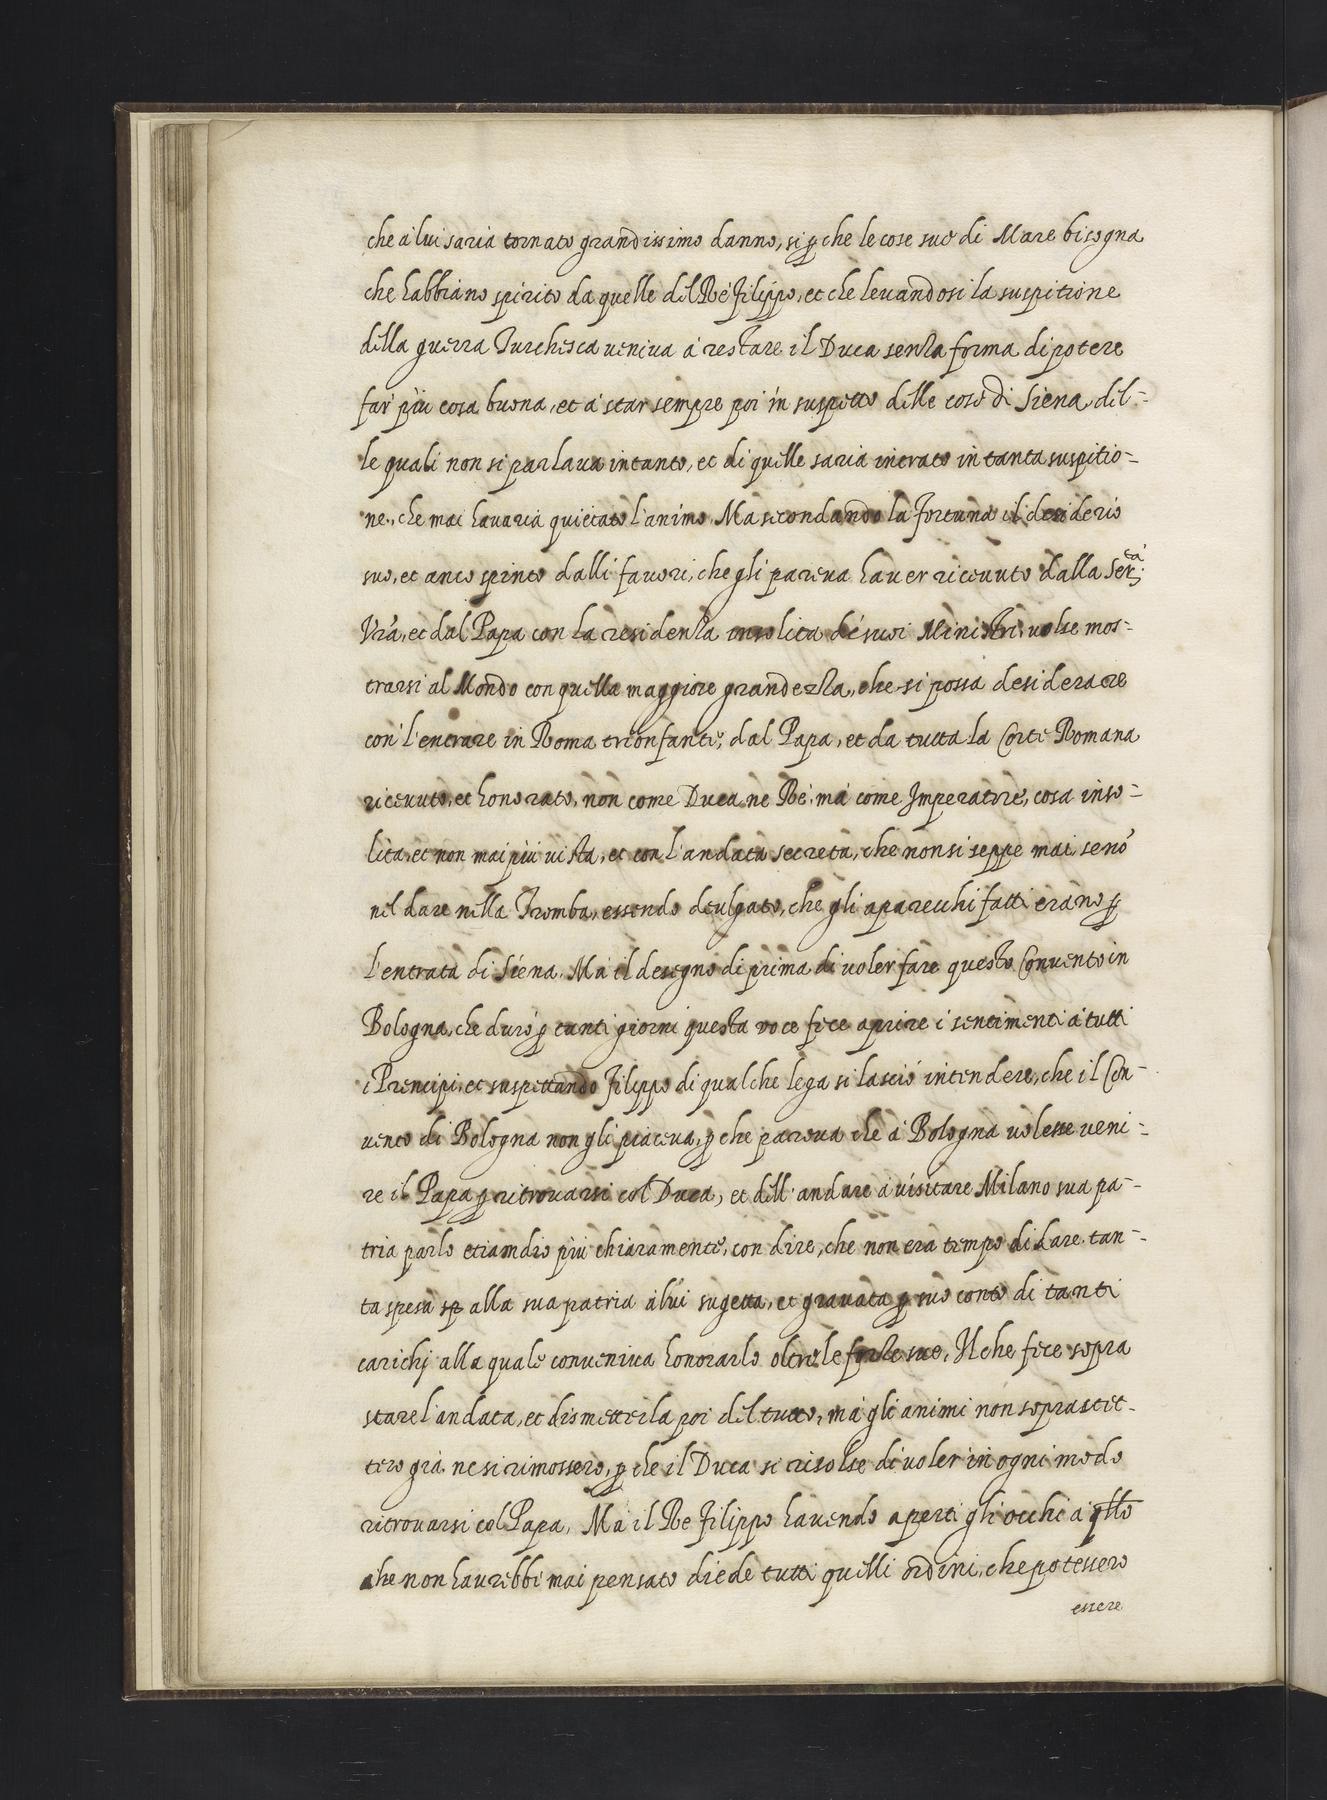 che à lui saria tornato grandissimo danno, si p che le cose sue di Mare bisogna
che habbiano spirito da quelle del Rè Filippo, et che levandosi la suspitione
della guerra Turchesca veniva à restare il Duca senza forma di potere
far più cosa buona, et à star sempre poi in suspetto delle cose di Siena, del-
le quali non si parlava intanto, et di quelle saria intrato in tanta suspitio-
ne, che mai havaria quietato l'animo. Ma secondando la Fortuna il desiderio
suo, et anco spinto dalli favori, che gli pareva haver ricevuto dalla Ser.tà
Vrà, et dal Papa con la residenza insolita dè suoi Ministri, volse mos-
trarsi al Mondo con quella maggiore grandezza, che si possa desiderare
con l'entrare in Roma trionfante, dal Papa, et da tutta la Corte Romana
ricevuto, et honorato, non come Duca nè Rè, mà come Imperatore, cosa inso-
lita, et non mai più vista, et con l'andata secreta, che non si seppe mai, senò
nel dare nella Tromba, essendo devlgato, che gli aparecchi fatti erano p
l'entrata di Siena. Mà il desegno di prima di voler fare questo Convento in
Bologna, che durò p tanti giorni questa voce fece aprire i sentimenti à tutti
i Prencipi, et suspettando Filippo di qualche lega si lasciò intendere, che il Con-
vento di Bologna non gli piaceva, p che pareva che à Bologna volesse veni-
re il Papa p ritrovarsi col Duca, et dell'andare à visitare Milano sua pa-
tria parlo etiamdio più chiaramente, con dire, che non era tempo di dare tan-
ta spesa alla sua patria à lui sugetta, et gravata p suo conto di tanti
carichi alla quale conveniva honorarlo oltre le forze sue, Il che fece sopra
stare l'andata, et dismetterla poi del tutto, mà gli animi non soprastet-
tero già, ne si rimossero, p che il Duca si risolse di voler in ogni modo
ritrovarsi col Papa, Ma il Re Filippo havendo aperti gli occhi à qllo
che non haverebbe mai pensato diede tutti quelli ordini, che potessero
essere